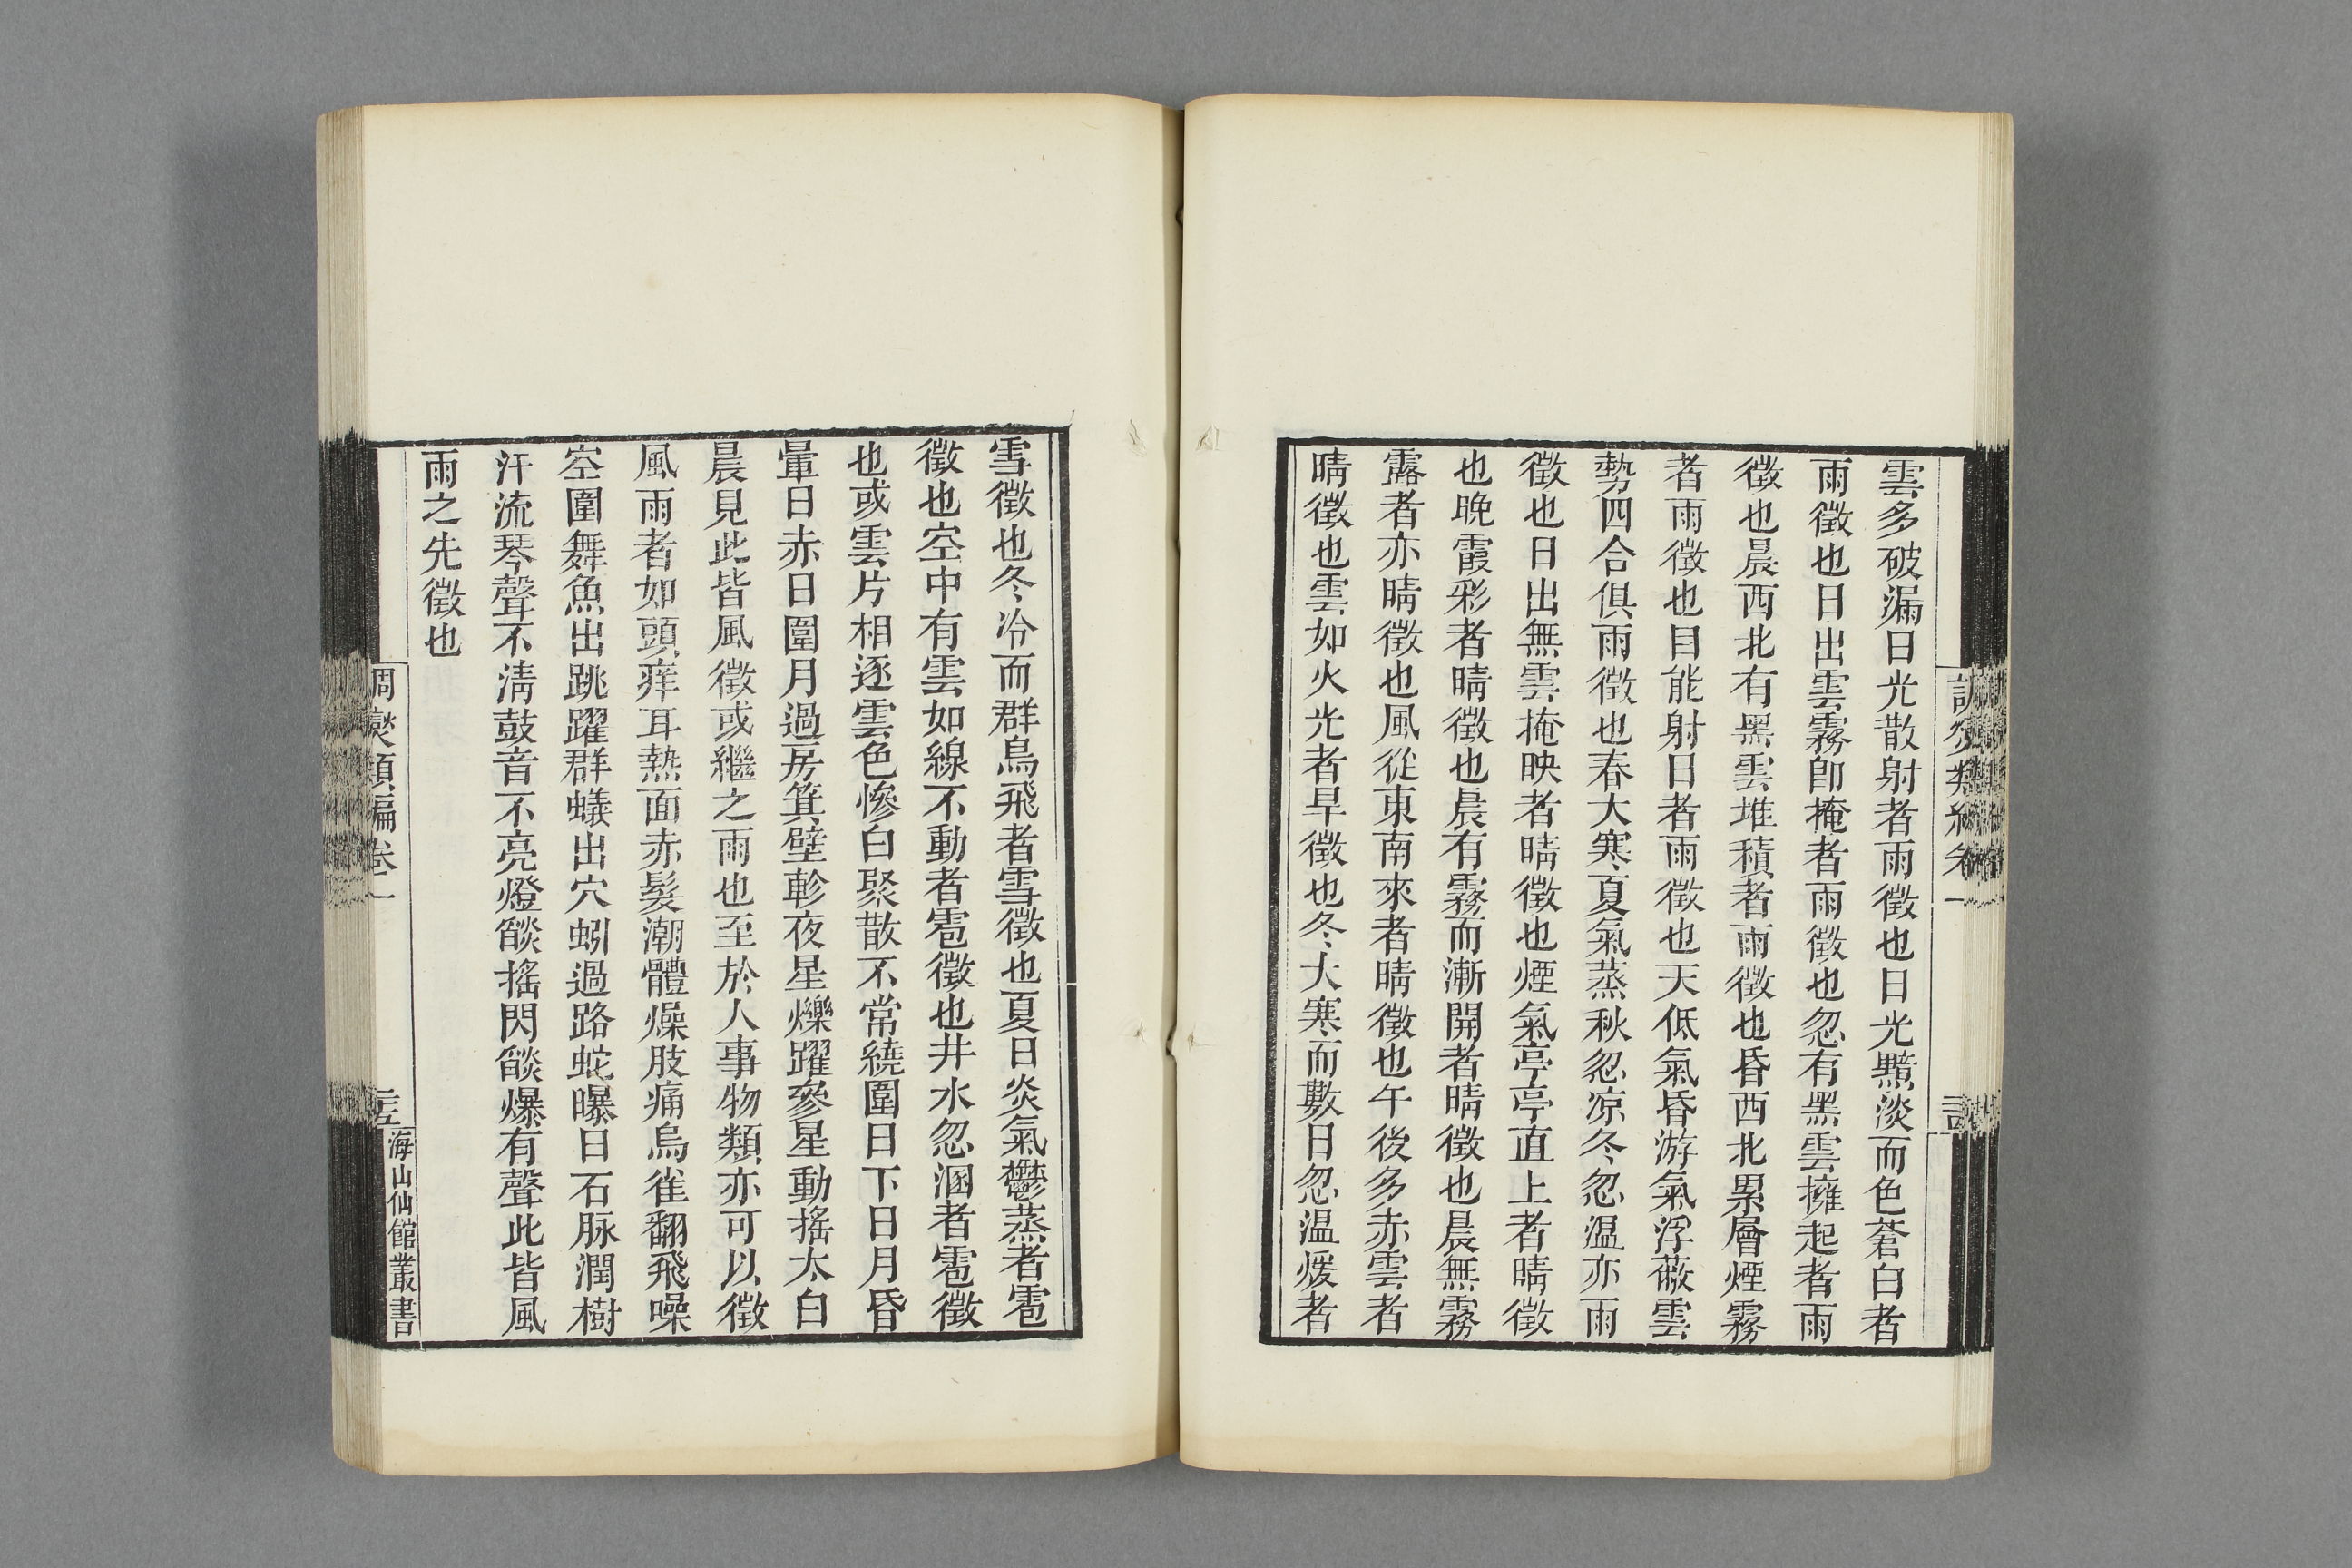 雲多破漏日光散射者雨徵也日光黯淡而色蒼白者
雨徵也日出雲霧卽掩者雨徵也忽有黑雲擁起者雨
徵也晨西北有黑雲堆積者雨徵也昏西北累層煙霧
者雨徵也目能射日者雨徵也天低氣昏游氣浮蔽雲
勢四合俱雨徵也春大寒夏氣蒸秋忽凉冬忽温亦雨
徵也日出無雲掩映者晴徵也煙氣亭亭直上者晴徵
也晚霞彩者晴徵也晨有霧而漸開者晴徵也晨無霧
露者亦晴徵也風從東南來者晴徵也午後多赤雲者
晴徵也雲如火光者旱徵也冬大寒而數日忽温煖者
雪徵也冬冷而群鳥飛者雪徵也夏日炎氣鬱蒸者雹
徵也空中有雲如線不動者雹徵也井水忽溷者雹徵
也或雲片相逐雲色慘白聚散不常繞圍日下日月昏
暈日赤日圍月過房箕壁軫夜星爍躍參星動搖太白
晨見此皆風徵或繼之雨也至於人事物類亦可以徵
風雨者如頭痒耳熱面赤髮潮體燥肢痛烏雀翻飛噪
空圍舞魚出跳躍群蟻出穴蚓過路蛇曝日石脉潤樹
汗流琴聲不淸鼓音不亮燈燄搖閃燄爆有聲此皆風
雨之先徵也
調燮類編卷一
海山仙館叢書